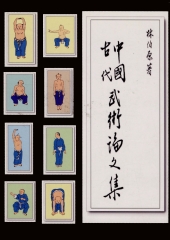 林伯原著
中國
古代
武術論文集